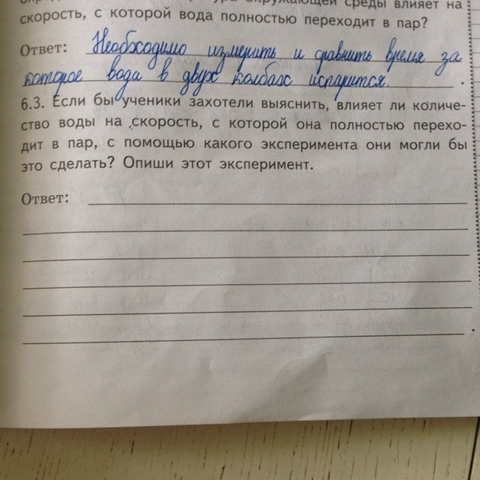 окружающей среды влияет на
скорость, с которой вода полностью переходит в пар?
Ответ: Необходимо измерить и сравнить время за
которое вода в двух колбах испарится.
6.3. Если бы ученики захотели выяснить, влияет ли количе-
ство воды на скорость, с которой она полностью перехо-
дит в пар, с помощью какого эксперимента они могли бы
это сделать? Опиши этот эксперимент.
Ответ: